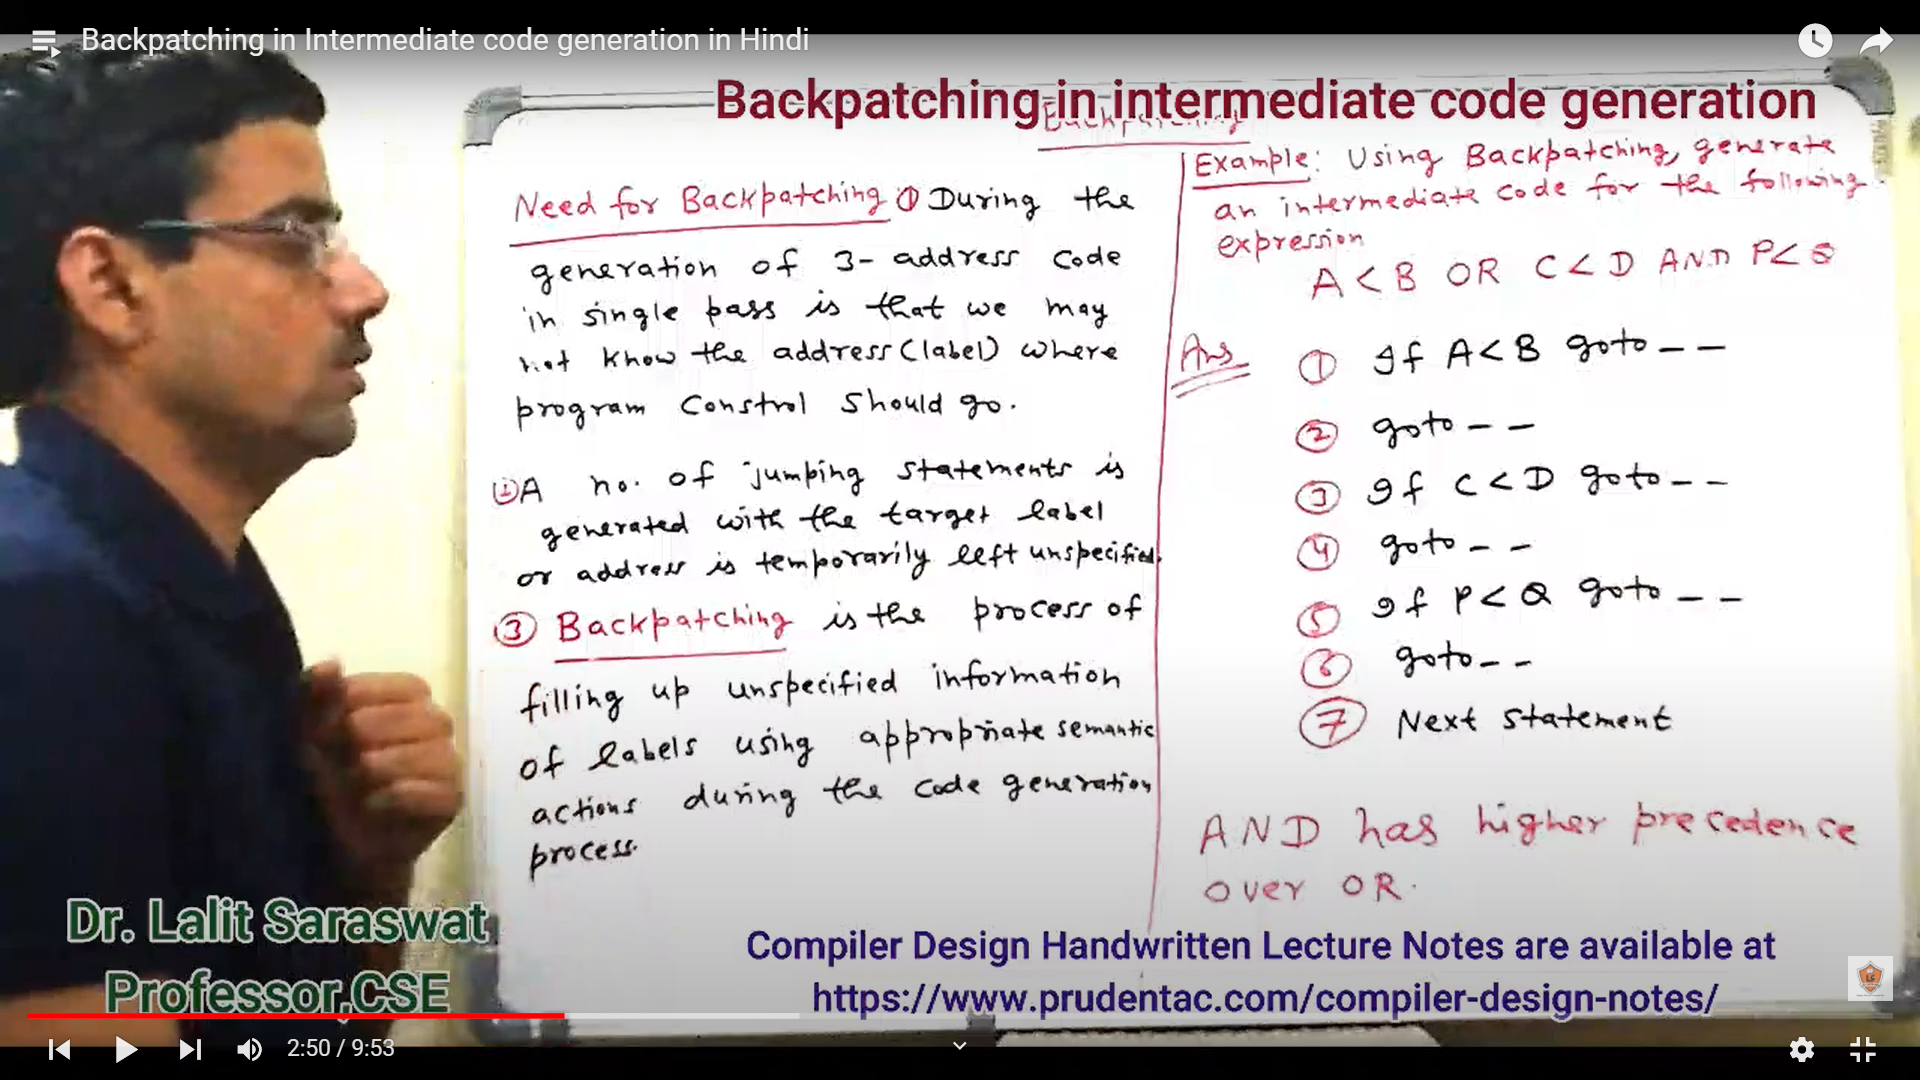 Backpatching in Intermediate code generation in Hindi
Backpatching in intermediate code generation
Backpatching
Need for Backpatching ① During the
generation of 3- address code
in single pass is that we may
not know the address (label) where
program constrol should go.
② A no. of jumping statements is
generated with the target label
or address is temporarily left unspecified.
③ Backpatching is the process of
filling up unspecified information
of labels using appropriate semantic
actions during the code generation
process.
Example: Using Backpatching, generate
an intermediate code for the following
expression
A < B OR C < D AND P < Q
Ans
① If A < B goto - -
② goto - -
③ If C < D goto - -
④ goto - -
⑤ If P < Q goto - -
⑥ goto - -
⑦ Next statement
AND has higher precedence
over OR.
Dr. Lalit Saraswat
Professor,CSE
Compiler Design Handwritten Lecture Notes are available at
https://www.prudentac.com/compiler-design-notes/
2:50 / 9:53